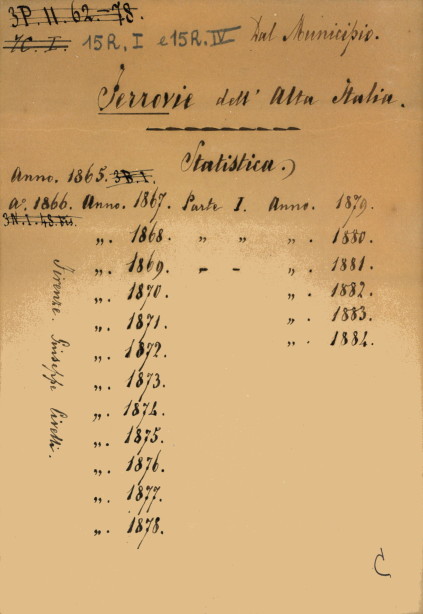 3P. II. 62-78.
7C. I. 15R. I e 15R. IV Dal Municipio.
Ferrovie dell' Alta Italia.
Statistica.)
Anno. 1865. 3B.1.
a°. 1866. Anno. 1867. Parte I. Anno. 1879.
3N.1.48.
„. 1868. „ „ „. 1880.
„. 1869. - - „. 1881.
„. 1870. „. 1882.
„. 1871. „. 1883.
„. 1872. „. 1884.
„. 1873.
„. 1874.
„. 1875.
„. 1876.
„. 1877.
„. 1878.
Firenze. Giuseppe Civelli.
C